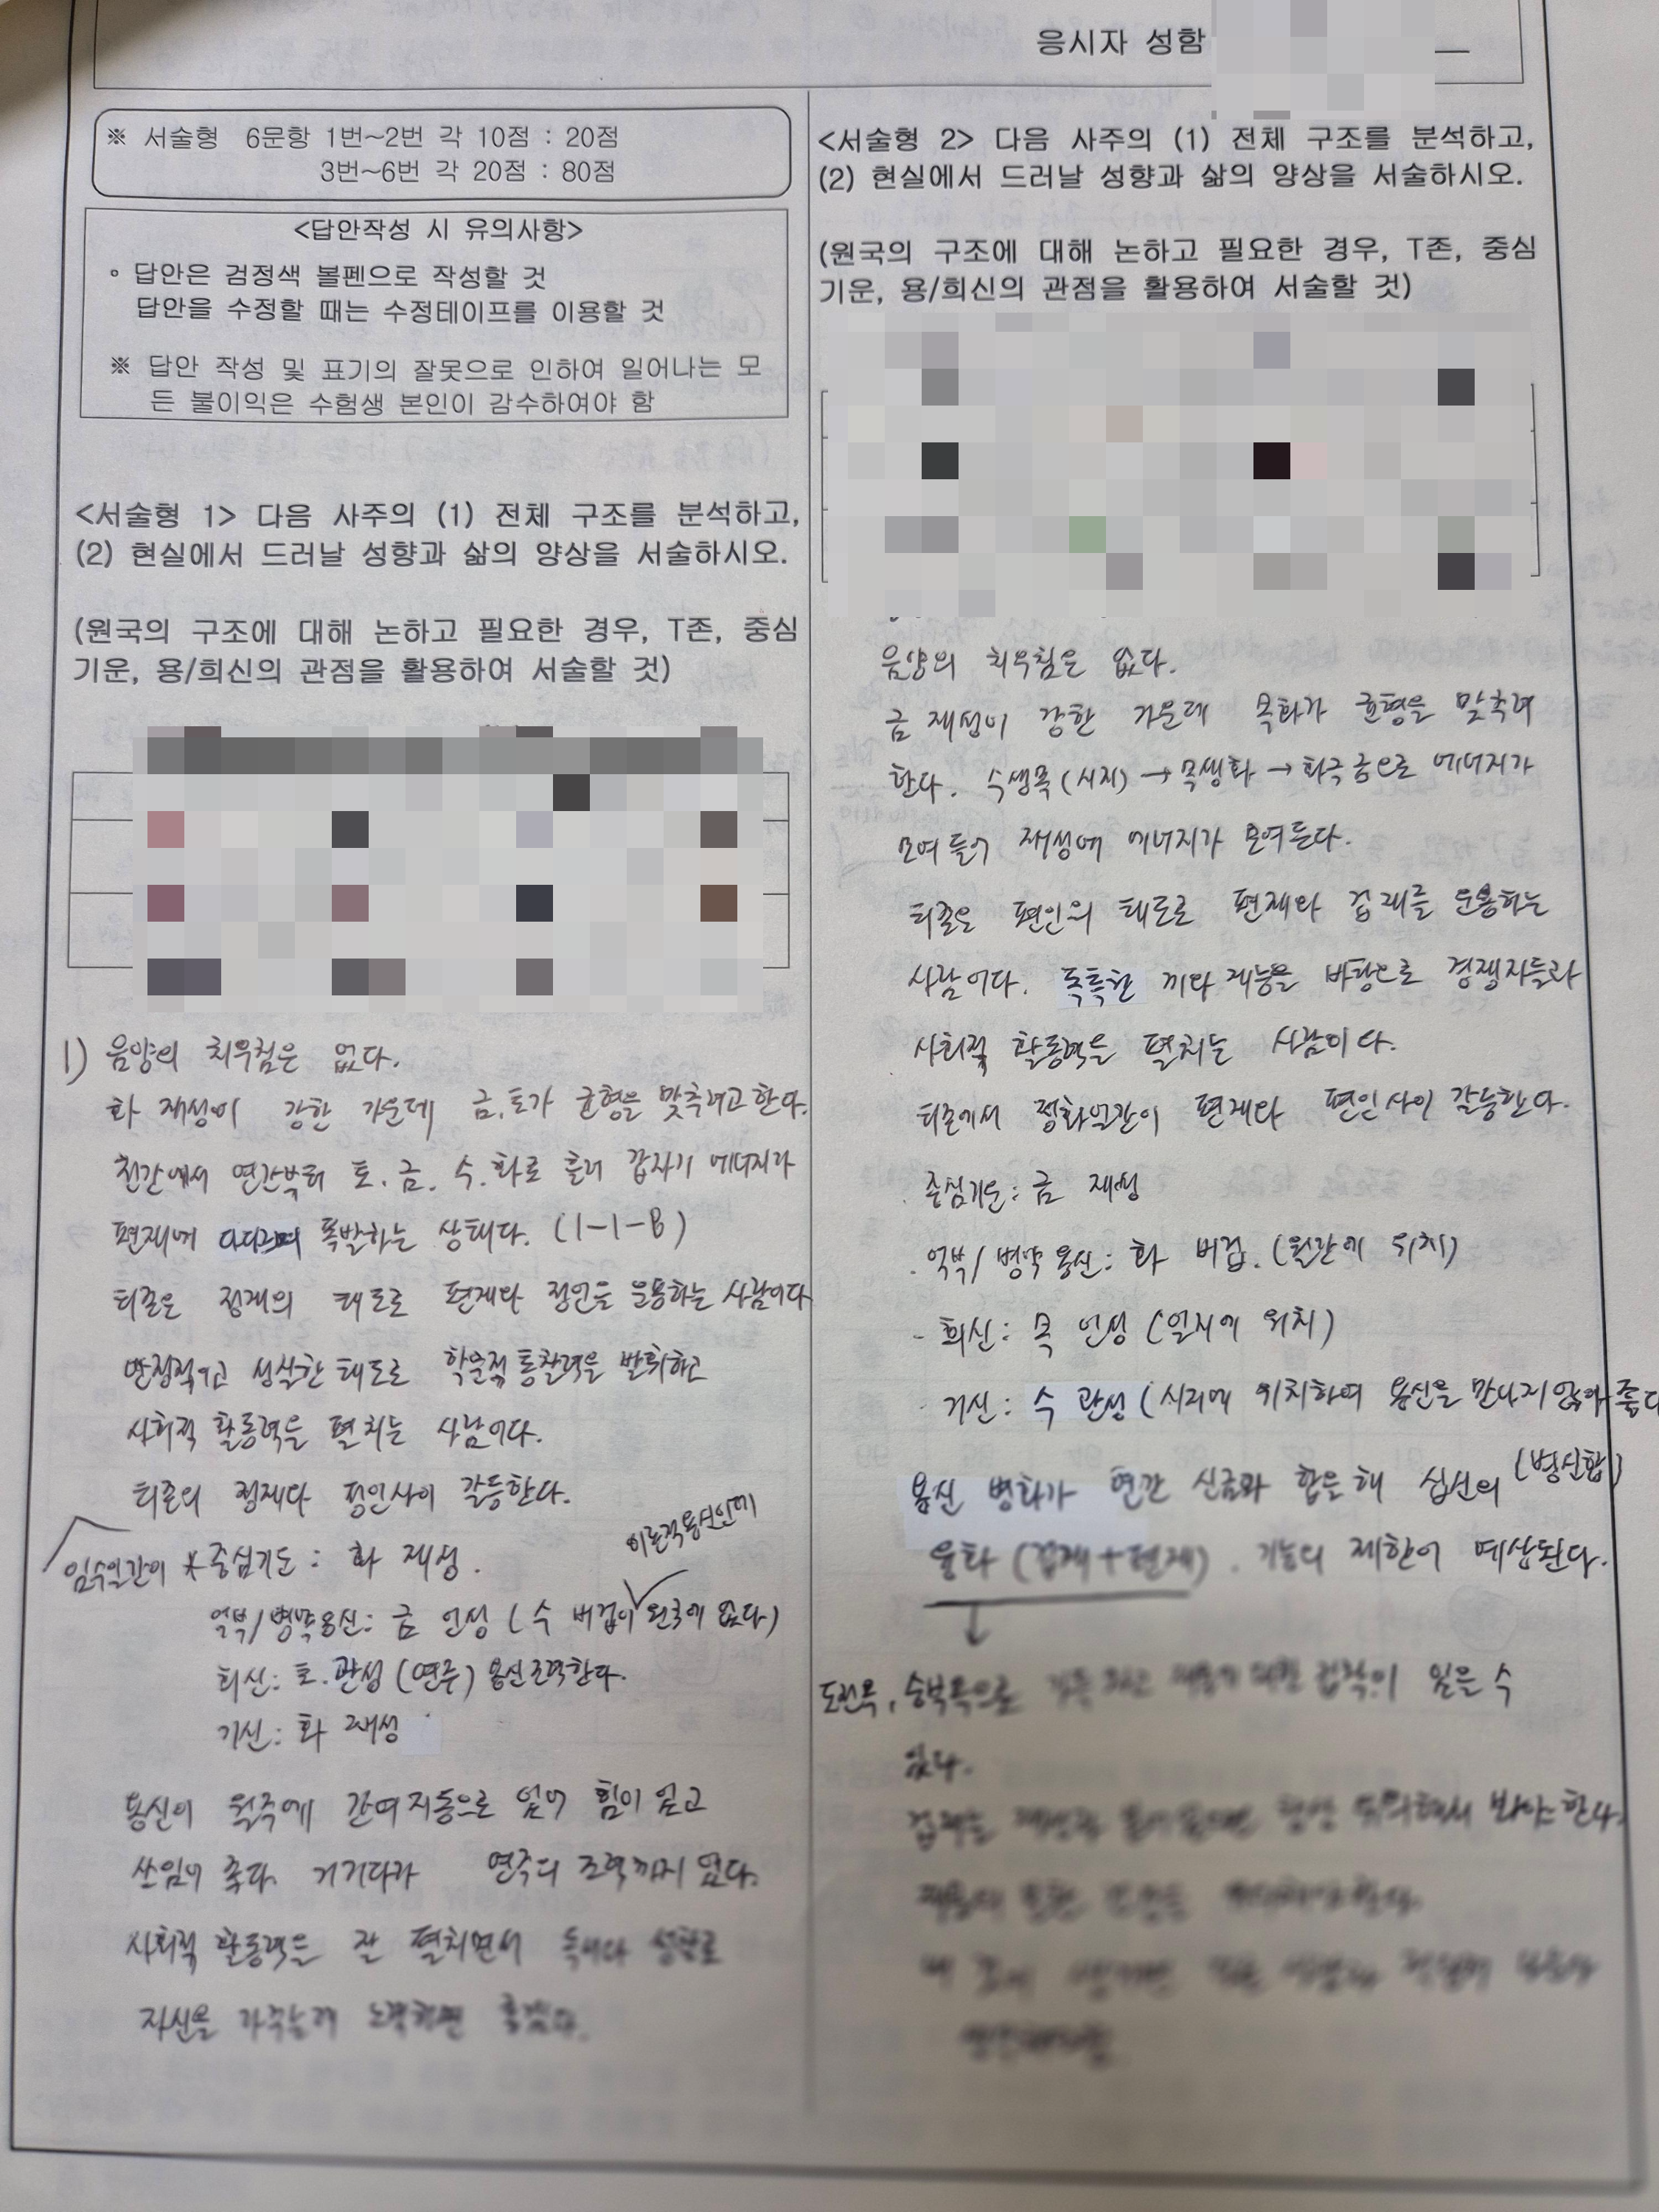 응시자 성함
※ 서술형 6문항 1번~2번 각 10점 : 20점
3번~6번 각 20점 : 80점
<답안작성 시 유의사항>
◦ 답안은 검정색 볼펜으로 작성할 것
답안을 수정할 때는 수정테이프를 이용할 것
※ 답안 작성 및 표기의 잘못으로 인하여 일어나는 모
든 불이익은 수험생 본인이 감수하여야 함
<서술형 1> 다음 사주의 (1) 전체 구조를 분석하고,
(2) 현실에서 드러날 성향과 삶의 양상을 서술하시오.
(원국의 구조에 대해 논하고 필요한 경우, T존, 중심
기운, 용/희신의 관점을 활용하여 서술할 것)
1) 음양의 치우침은 없다.
화 재성이 강한 가운데 금.토가 균형을 맞추려고 한다.
천간에서 연간부터 토.금.수.화로 흘러 갑자기 에너지가
편재에 다다르며 폭발하는 상태다. (1-1-B)
티존은 정재의 태도로 편재와 정인을 운용하는 사람이다
안정적이고 성실한 태도로 학술적 통찰력을 발휘하고
사회적 활동력을 펼치는 사람이다.
티존의 정재와 정인사이 갈등한다.
임수일간이 * 중심기운 : 화 재성.
이론적용신인데
억부/병약용신: 금 인성 ( 수 비겁이 원국에 없다)
희신: 토.관성 (연주) 용신조력한다.
기신: 화 재성
용신이 월주에 간여지동으로 있어 힘이 있고
쓰임이 좋다. 거기다가 연주의 조력까지 있다.
사회적 활동력을 잘 펼치면서
자신을
<서술형 2> 다음 사주의 (1) 전체 구조를 분석하고,
(2) 현실에서 드러날 성향과 삶의 양상을 서술하시오.
(원국의 구조에 대해 논하고 필요한 경우, T존, 중심
기운, 용/희신의 관점을 활용하여 서술할 것)
음양의 치우침은 없다.
금 재성이 강한 가운데 목화가 균형을 맞추려
한다. 수생목(시지) → 목생화 → 화극금으로 에너지가
모여들어 재성에 에너지가 모여든다.
티존은 편인의 태도로 편재와 겁재를 운용하는
사람이다. 독특한 끼와 재능을 바탕으로 경쟁자들과
사회적 활동력을 펼치는 사람이다.
티존에서 정화일간이 편재와 편인사이 갈등한다.
· 중심기운: 금 재성
· 억부/병약용신: 화 비겁. (월간에 위치)
- 희신: 목 인성 (일지에 위치)
- 기신: 수 관성 (시지에 위치하여 용신을 만나지 않아 좋다
용신 병화가 연간 신금과 합을 해 십신의 (병신합)
융화 (겁재+편재). 기능의 제한이 예상된다.
↓
도전욕, 승부욕으로 집착이 있을 수
있다.
겁재는 항상 봐야한다.